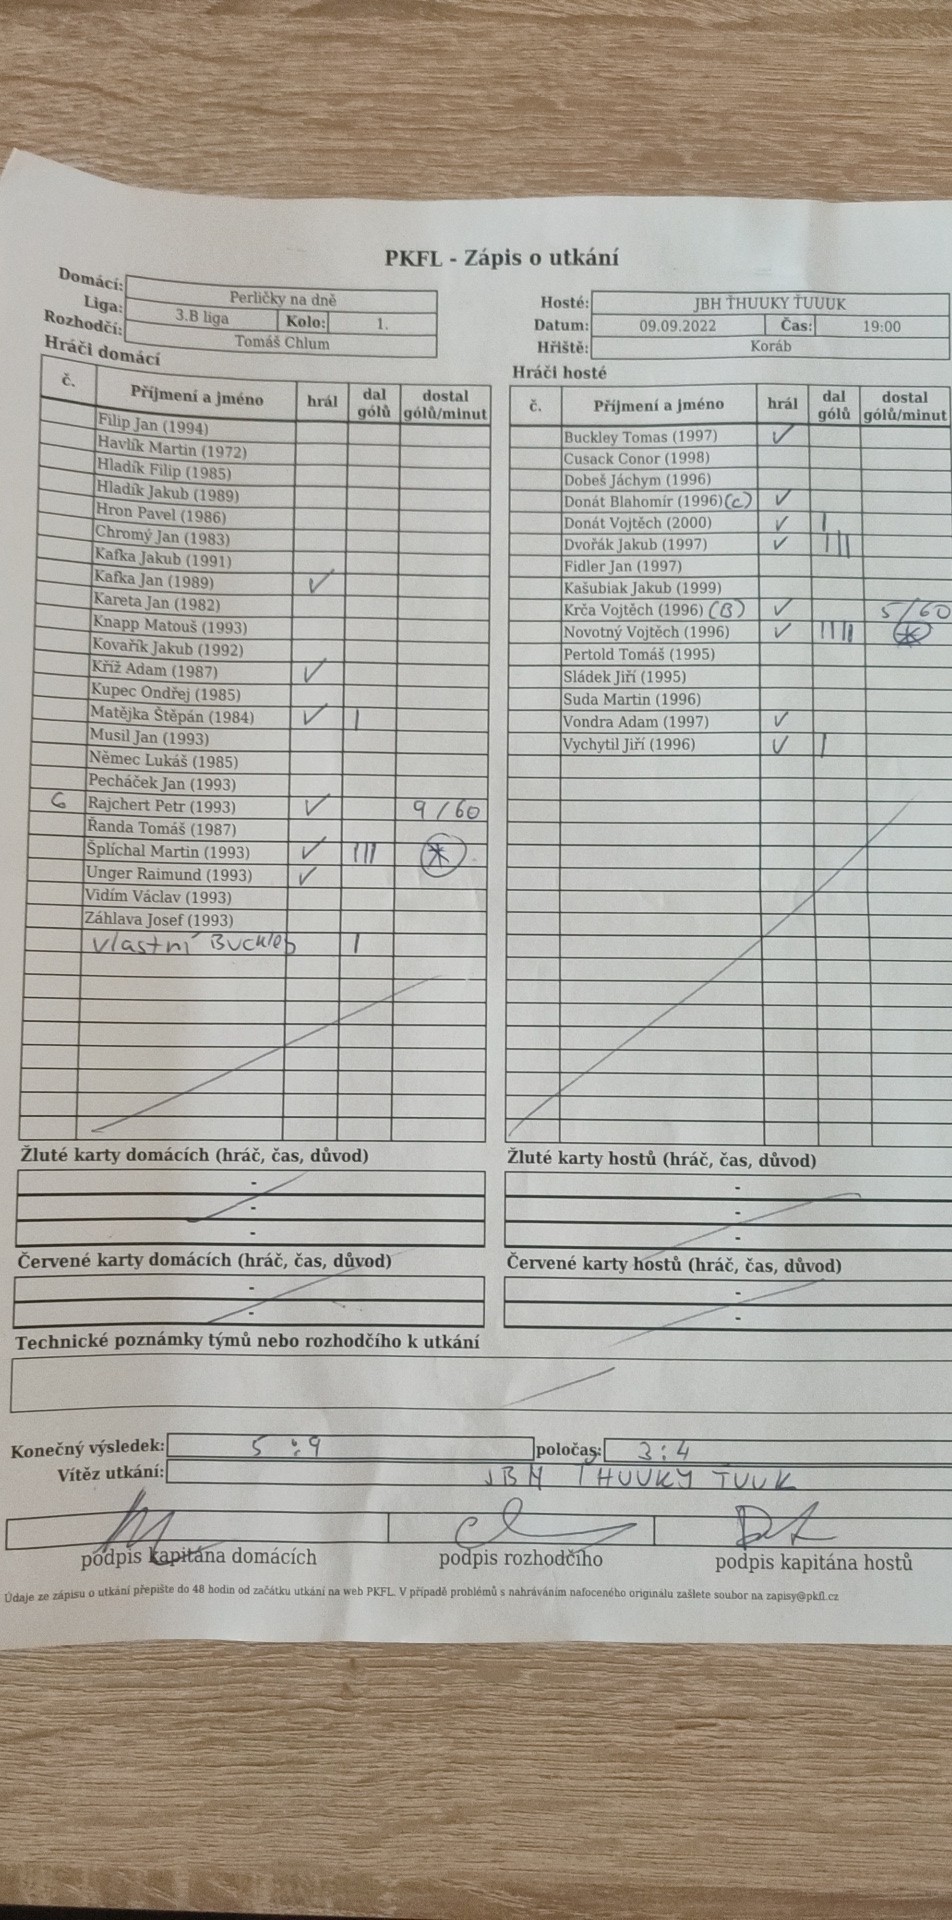 PKFL - Zápis o utkání
Domácí: Perličky na dně
Liga: 3.B liga Kolo: 1.
Rozhodčí: Tomáš Chlum
Hosté: JBH ŤHUUKY ŤUUUK
Datum: 09.09.2022 Čas: 19:00
Hřiště: Koráb
Hráči domácí
č. Příjmení a jméno hrál dal gólů dostal gólů/minut
Filip Jan (1994)
Havlík Martin (1972)
Hladík Filip (1985)
Hladík Jakub (1989)
Hron Pavel (1986)
Chromý Jan (1983)
Kafka Jakub (1991)
Kafka Jan (1989) ✓
Kareta Jan (1982)
Knapp Matouš (1993)
Kovařík Jakub (1992)
Kříž Adam (1987) ✓
Kupec Ondřej (1985)
Matějka Štěpán (1984) ✓ |
Musil Jan (1993)
Němec Lukáš (1985)
Pecháček Jan (1993)
G Rajchert Petr (1993) ✓ 9/60
Řanda Tomáš (1987)
Šplíchal Martin (1993) ✓ ||| *
Unger Raimund (1993) ✓
Vidím Václav (1993)
Záhlava Josef (1993)
vlastní Buckley |
Hráči hosté
č. Příjmení a jméno hrál dal gólů dostal gólů/minut
Buckley Tomas (1997) ✓
Cusack Conor (1998)
Dobeš Jáchym (1996)
Donát Blahomír (1996) (C) ✓
Donát Vojtěch (2000) ✓ |
Dvořák Jakub (1997) ✓ |||
Fidler Jan (1997)
Kašubiak Jakub (1999)
Krča Vojtěch (1996) (B) ✓ 5/60
Novotný Vojtěch (1996) ✓ |||| *
Pertold Tomáš (1995)
Sládek Jiří (1995)
Suda Martin (1996)
Vondra Adam (1997) ✓
Vychytil Jiří (1996) ✓ |
Žluté karty domácích (hráč, čas, důvod)
-
-
-
Žluté karty hostů (hráč, čas, důvod)
-
-
-
Červené karty domácích (hráč, čas, důvod)
-
-
Červené karty hostů (hráč, čas, důvod)
-
-
Technické poznámky týmů nebo rozhodčího k utkání
Konečný výsledek: 5:9 poločas: 3:4
Vítěz utkání: JBH THUUKY TUUK
podpis kapitána domácích podpis rozhodčího podpis kapitána hostů
Údaje ze zápisu o utkání přepište do 48 hodin od začátku utkání na web PKFL. V případě problémů s nahráváním nafoceného originálu zašlete soubor na zapisy@pkfl.cz